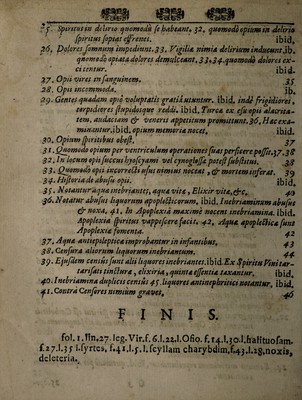 25. Spiritus in delirio quomodò se habeant. 32. quomodò opium in delirio
spiritus sopiat effrenes. ibid.
26. Dolores somnum impediunt. 33. Vigilia nimia delirium inducunt. ib.
quomodo opiata dolores demulceant. 33. 34. quomodò dolores ex-
citentur. ibid.
27. Opii vires in sanguinem. 35
28. Opii incommoda. ib.
29. Gentes quædam opiò voluptatis gratiâ utuntur. ibid. indè frigidiores,
perpdiciores stupidique redditi. ibid. Turcæ ex esu opii alacrita-
tem, audaciam & veneris appetitum promittunt. 36. Hæc exa-
minantur. ibid. opium memoria nocet, ibid.
30. Opium spiritibus obest. 37
31. Quomodò opium per ventriculum operationes suas perficere possit. 37. 38
32. In locum opii succus hyoscyami vel cynoglossa potest substitui. 38
33. Quomodò opii incorrecti usus nimius noceat, & mortem inferat. 39
34. Historia de abusu opii. ibid.
35. Notantur aquæ inebriantes, aqua vitæ, Elixir vitæ, &c. 40
36. Notatur abusus liquorum apoplecticorum. ibid. Inebriaminum abusus
& noxa. 41. In Apoplexiâ maximè nocent inebriamina. ibid.
Apoplexia spiritus vappescere facit. 42. Aquæ apoplecticæ sunt
Apoplexiæ fomenta. 42
37. Aquæ antiepilepticæ improbantur in infantibus. 43
38. Censura aliorum liquorum inebriantium. 44
39. Ejusdem census sunt alii liquores inebriantes. ibid. Ex Spiritu Vini tar-
tarisati tincturæ, elixiria, quinta essentia taxantur. ibid.
40. Inebriamina duplicis census. 45. liquores antinephritici notantur. ibid.
41. Contrà Censores nimium graves. 46
FINIS.
fol. 1. lin. 27. leg. Vir. f. 6. l. 22. l. Osio. f. 14. l. 30. l. halituosam.
f. 27. l. 35 l. syrtes, f. 41. l. 5. l. scyllam charybdim, f. 43. l. 28. noxis,
deleteria.